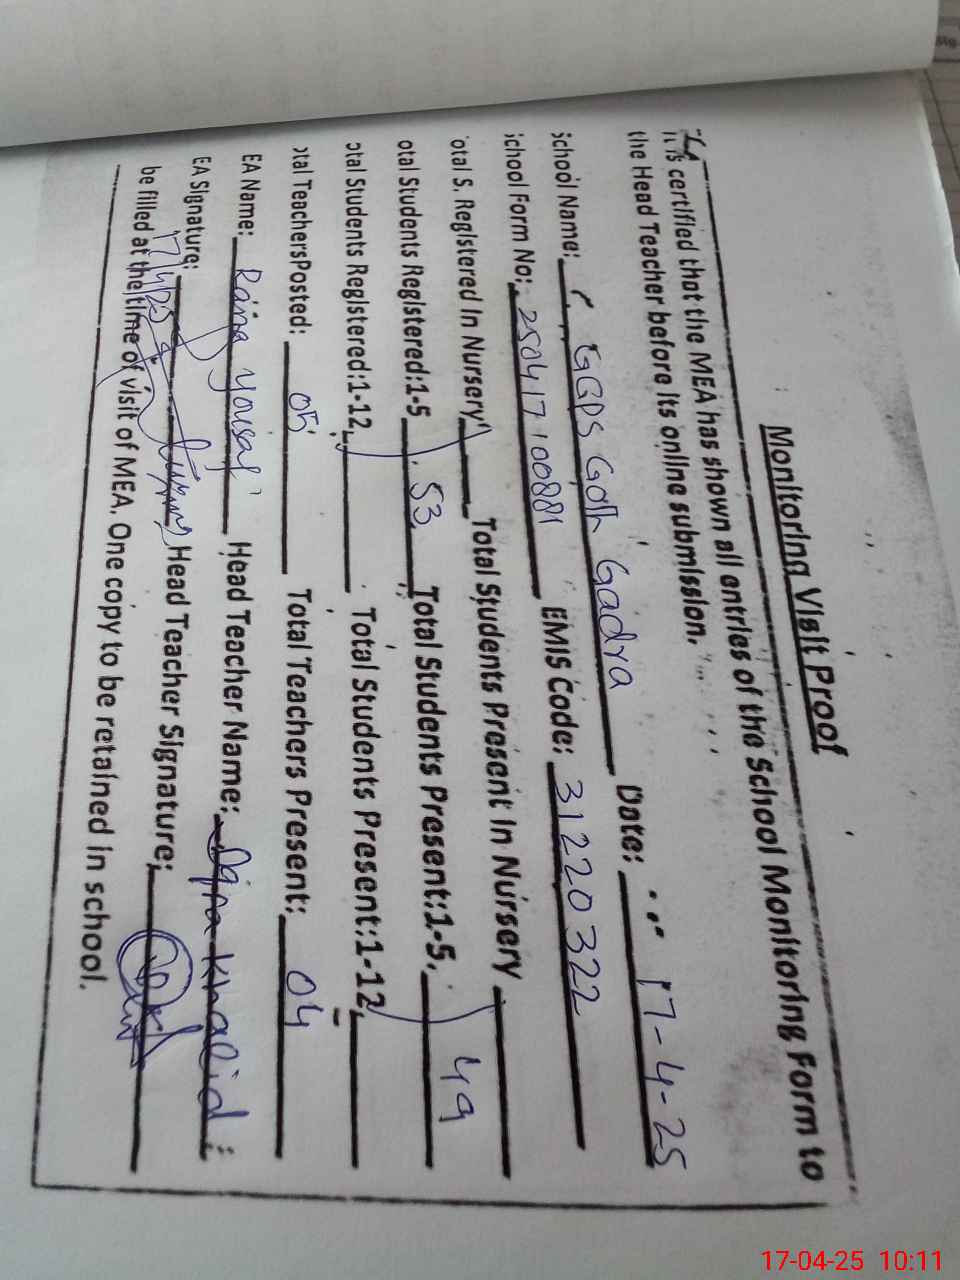 Monitoring Visit Proof
It is certified that the MEA has shown all entries of the School Monitoring Form to
the Head Teacher before its online submission.
School Name: GGPS Goth Gadra Date: 17-4-25
School Form No: 250417100881 EMIS Code: 31220322
otal S. Registered In Nursery Total Students Present In Nursery
otal Students Registered:1-5 53 Total Students Present:1-5. 49
otal Students Registered:1-12 Total Students Present:1-12
otal TeachersPosted: 05 Total Teachers Present: 04
EA Name: Rana yousaf Head Teacher Name: Iqra Khalid
EA Signature: Head Teacher Signature:
17/4/25
be filled at the time of visit of MEA. One copy to be retained in school.
17-04-25 10:11